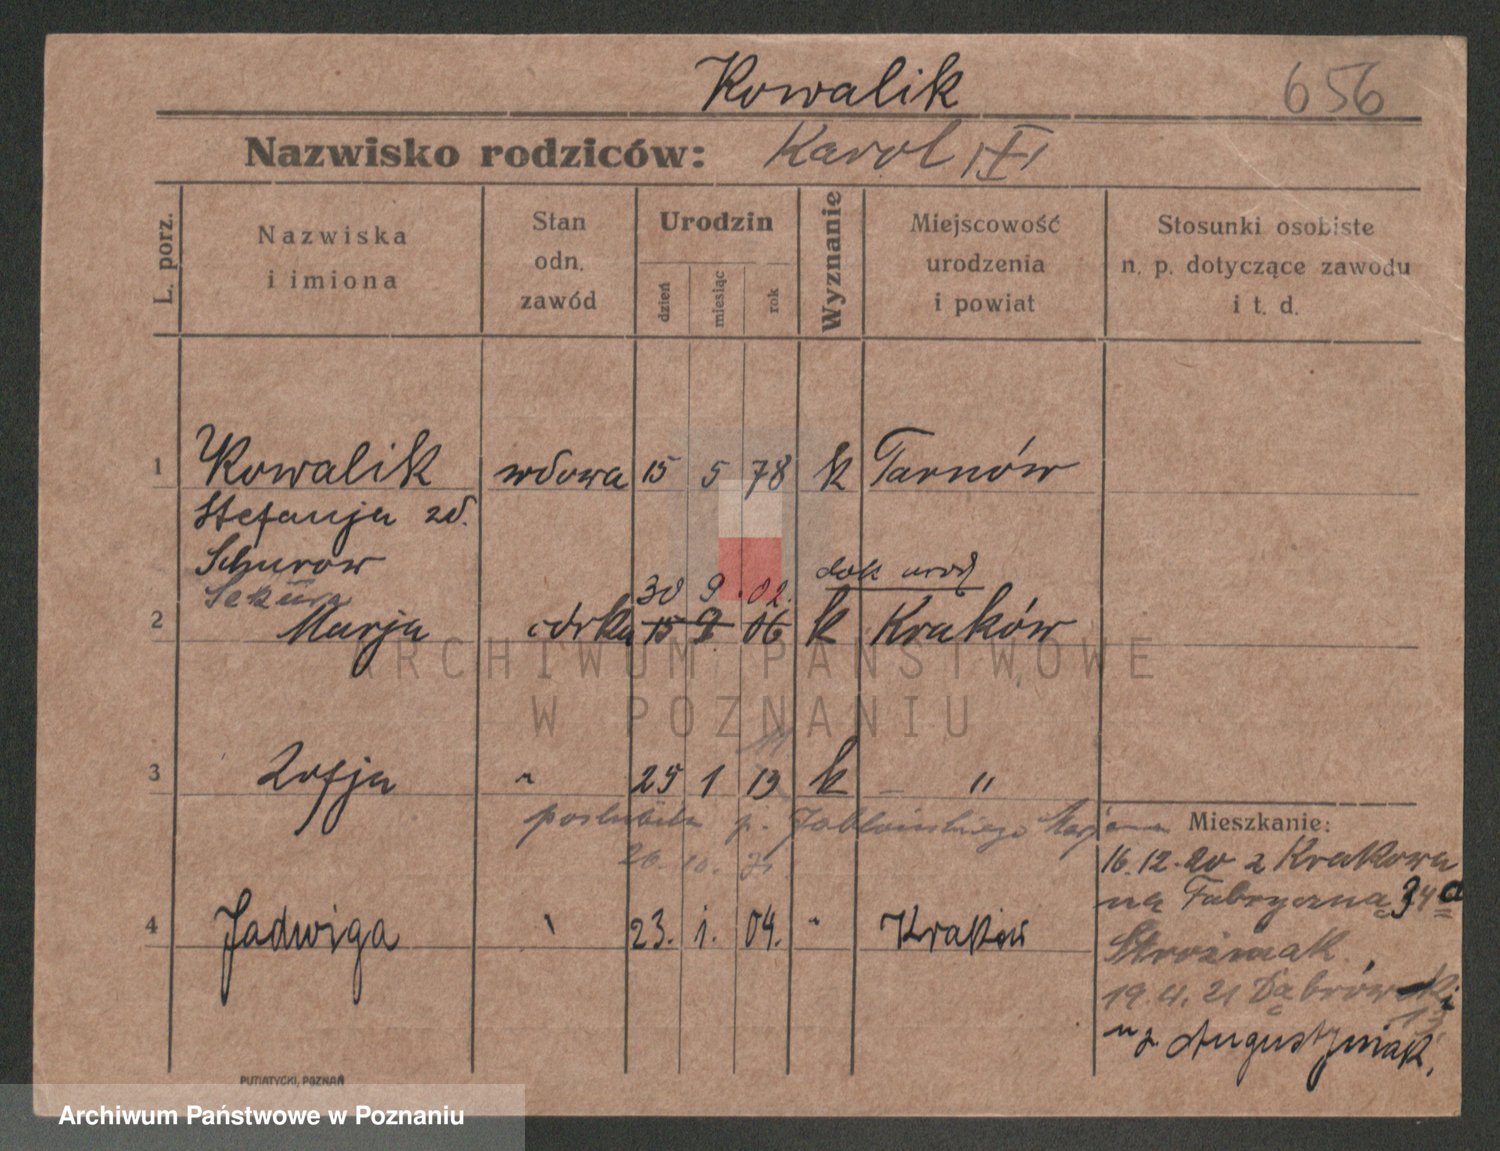 Kowalik
656
Nazwisko rodziców: Karol
L. porz.
Nazwiska i imiona
Stan odn. zawód
Urodzin
dzień
miesiąc
rok
Wyznanie
Miejscowość urodzenia i powiat
Stosunki osobiste n. p. dotyczące zawodu i t. d.
1 Kowalik wdowa 15 5 78 k Tarnów
Stefanja zd.
Schurow
30 9 02. dok urodz
2 Marja córka 15 9 06 k Kraków
ARCHIWUM PAŃSTWOWE
W POZNANIU
3 Zofja " 25 1 13 k — "
poślubiła p. Jabłońskiego Marjana
Mieszkanie:
16.12.20 z Krakowa
na Fabryczną 34a
4 Jadwiga " 23. 1. 04. " Kraków
Stroźniak.
19.4.21 Dąbrówki
13
u p. Augustyniak.
PUTIATYCKI, POZNAŃ
Archiwum Państwowe w Poznaniu